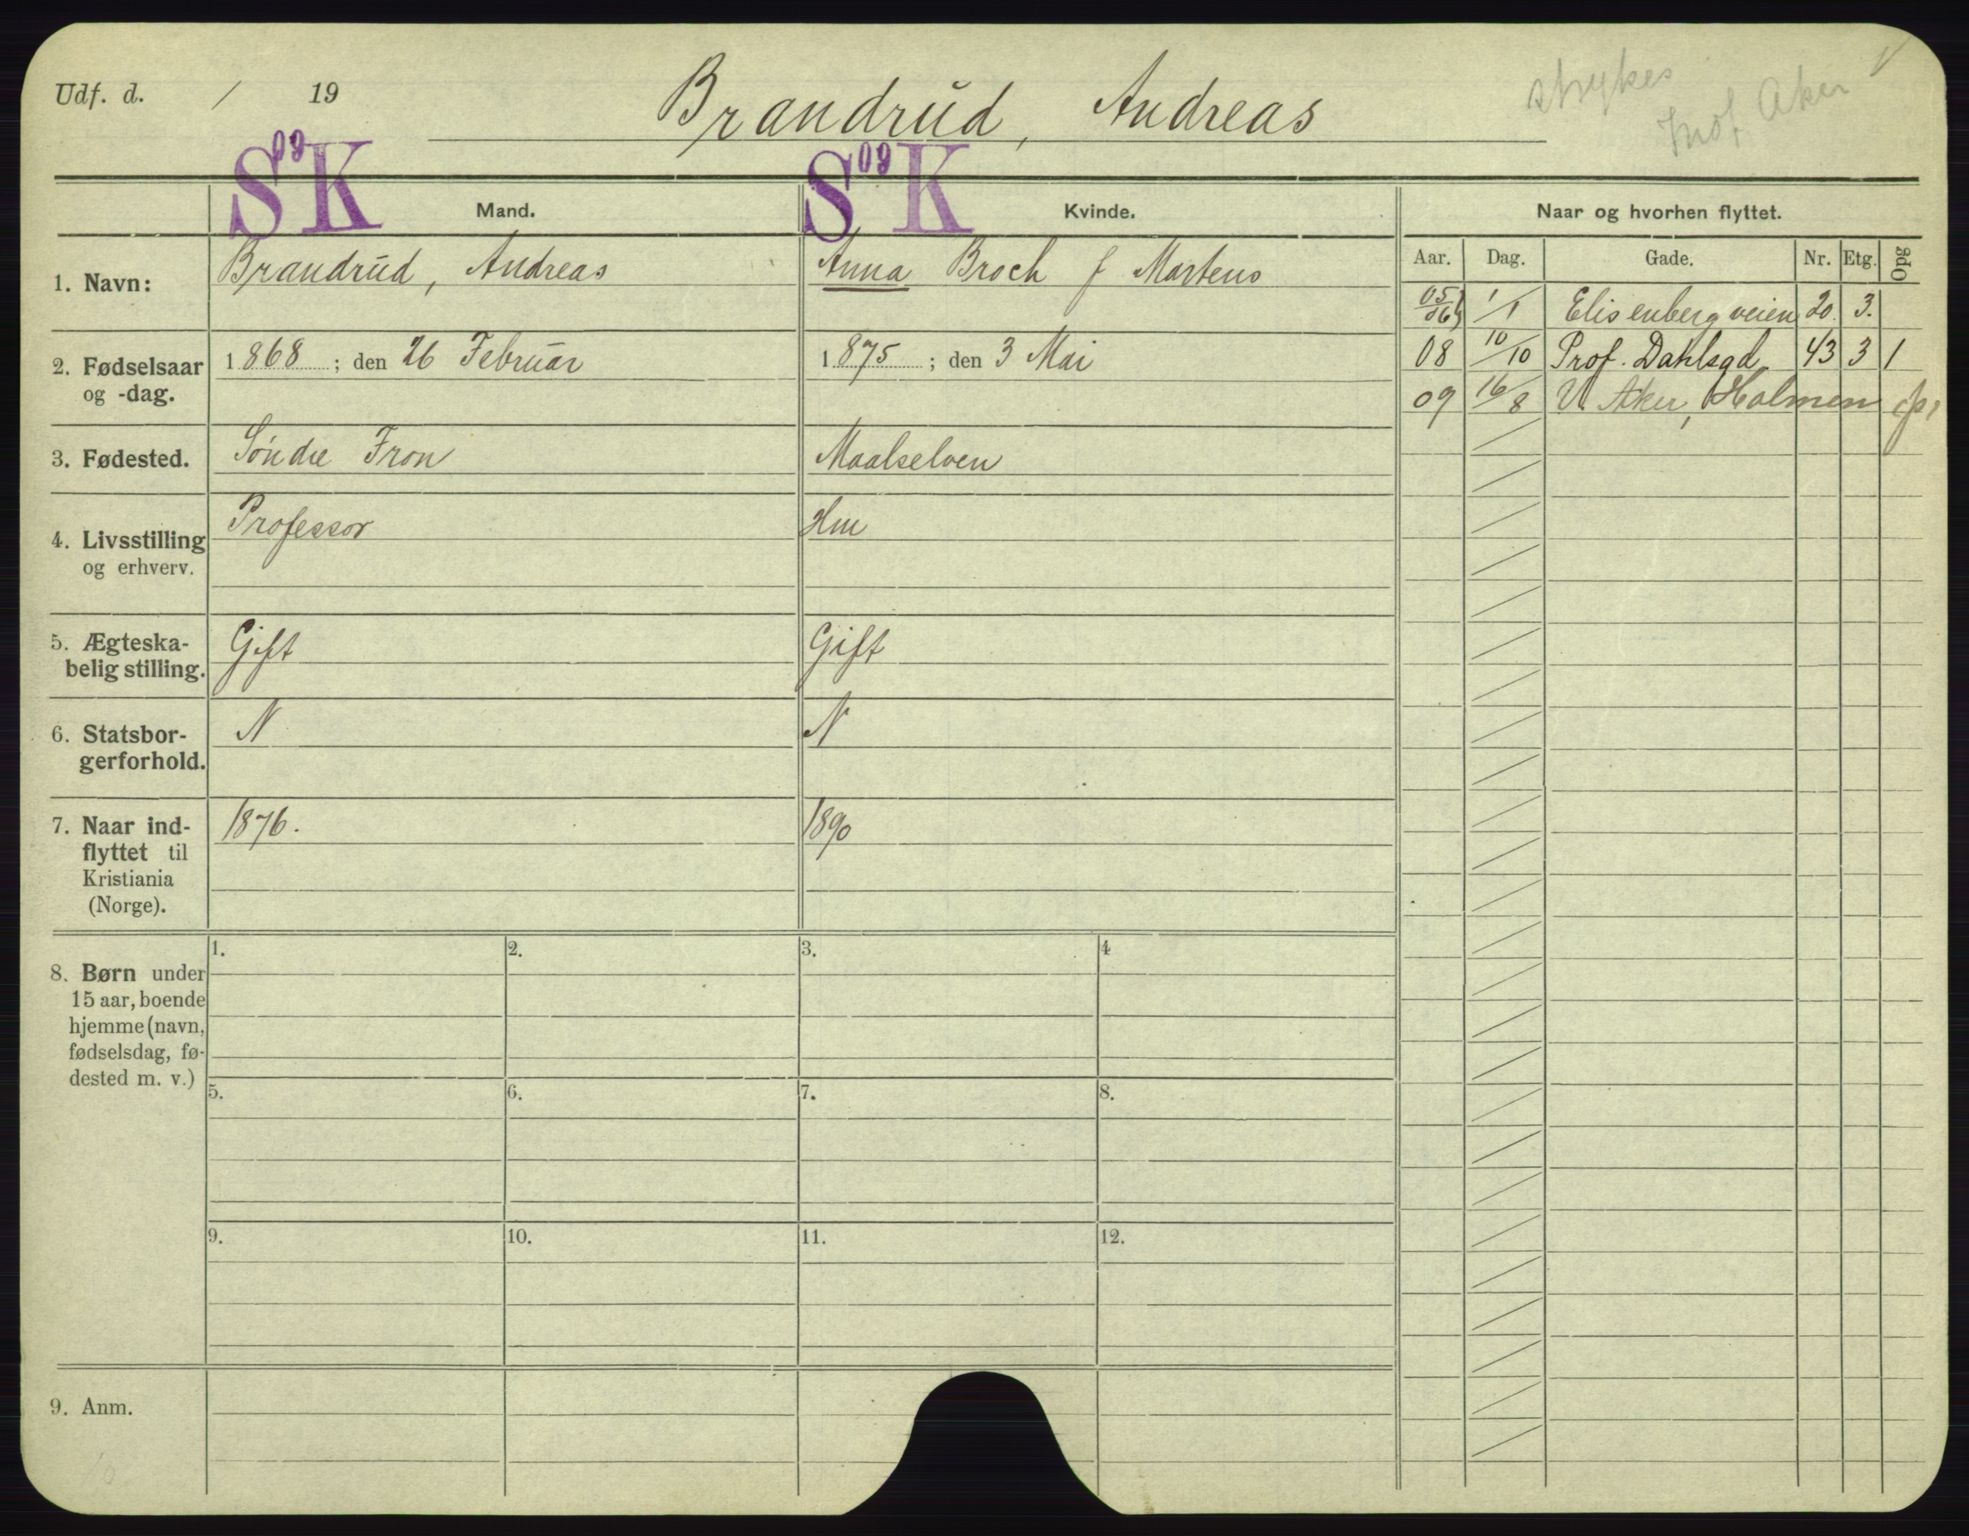 Udf. d. / 19
Brandrud, Andreas
strykes
Aker
S og K
S og K
Mand.
Kvinde.
Naar og hvorhen flyttet.
Aar. Dag. Gade. Nr. Etg. Opg
1. Navn:
Brandrud, Andreas
Anna Broch f Martens
05/06 1/1 Elisenbergveien 20. 3.
08 10/10 Prof. Dahlsgd 43 3 1
09 16/8 V. Aker, Holmen
2. Fødselsaar
og -dag.
1868 ; den 26 Februar
1875 ; den 3 Mai
3. Fødested.
Søndre Fron
Maalselven
4. Livsstilling
og erhverv.
Professor
Hm
5. Ægteska-
belig stilling.
Gift
Gift
6. Statsbor-
gerforhold.
N
N
7. Naar ind-
flyttet til
Kristiania
(Norge).
1876.
1890
8. Børn under
15 aar, boende
hjemme (navn,
fødselsdag, fø-
dested m. v.)
1. 2. 3. 4
5. 6. 7. 8.
9. 10. 11. 12.
9. Anm.